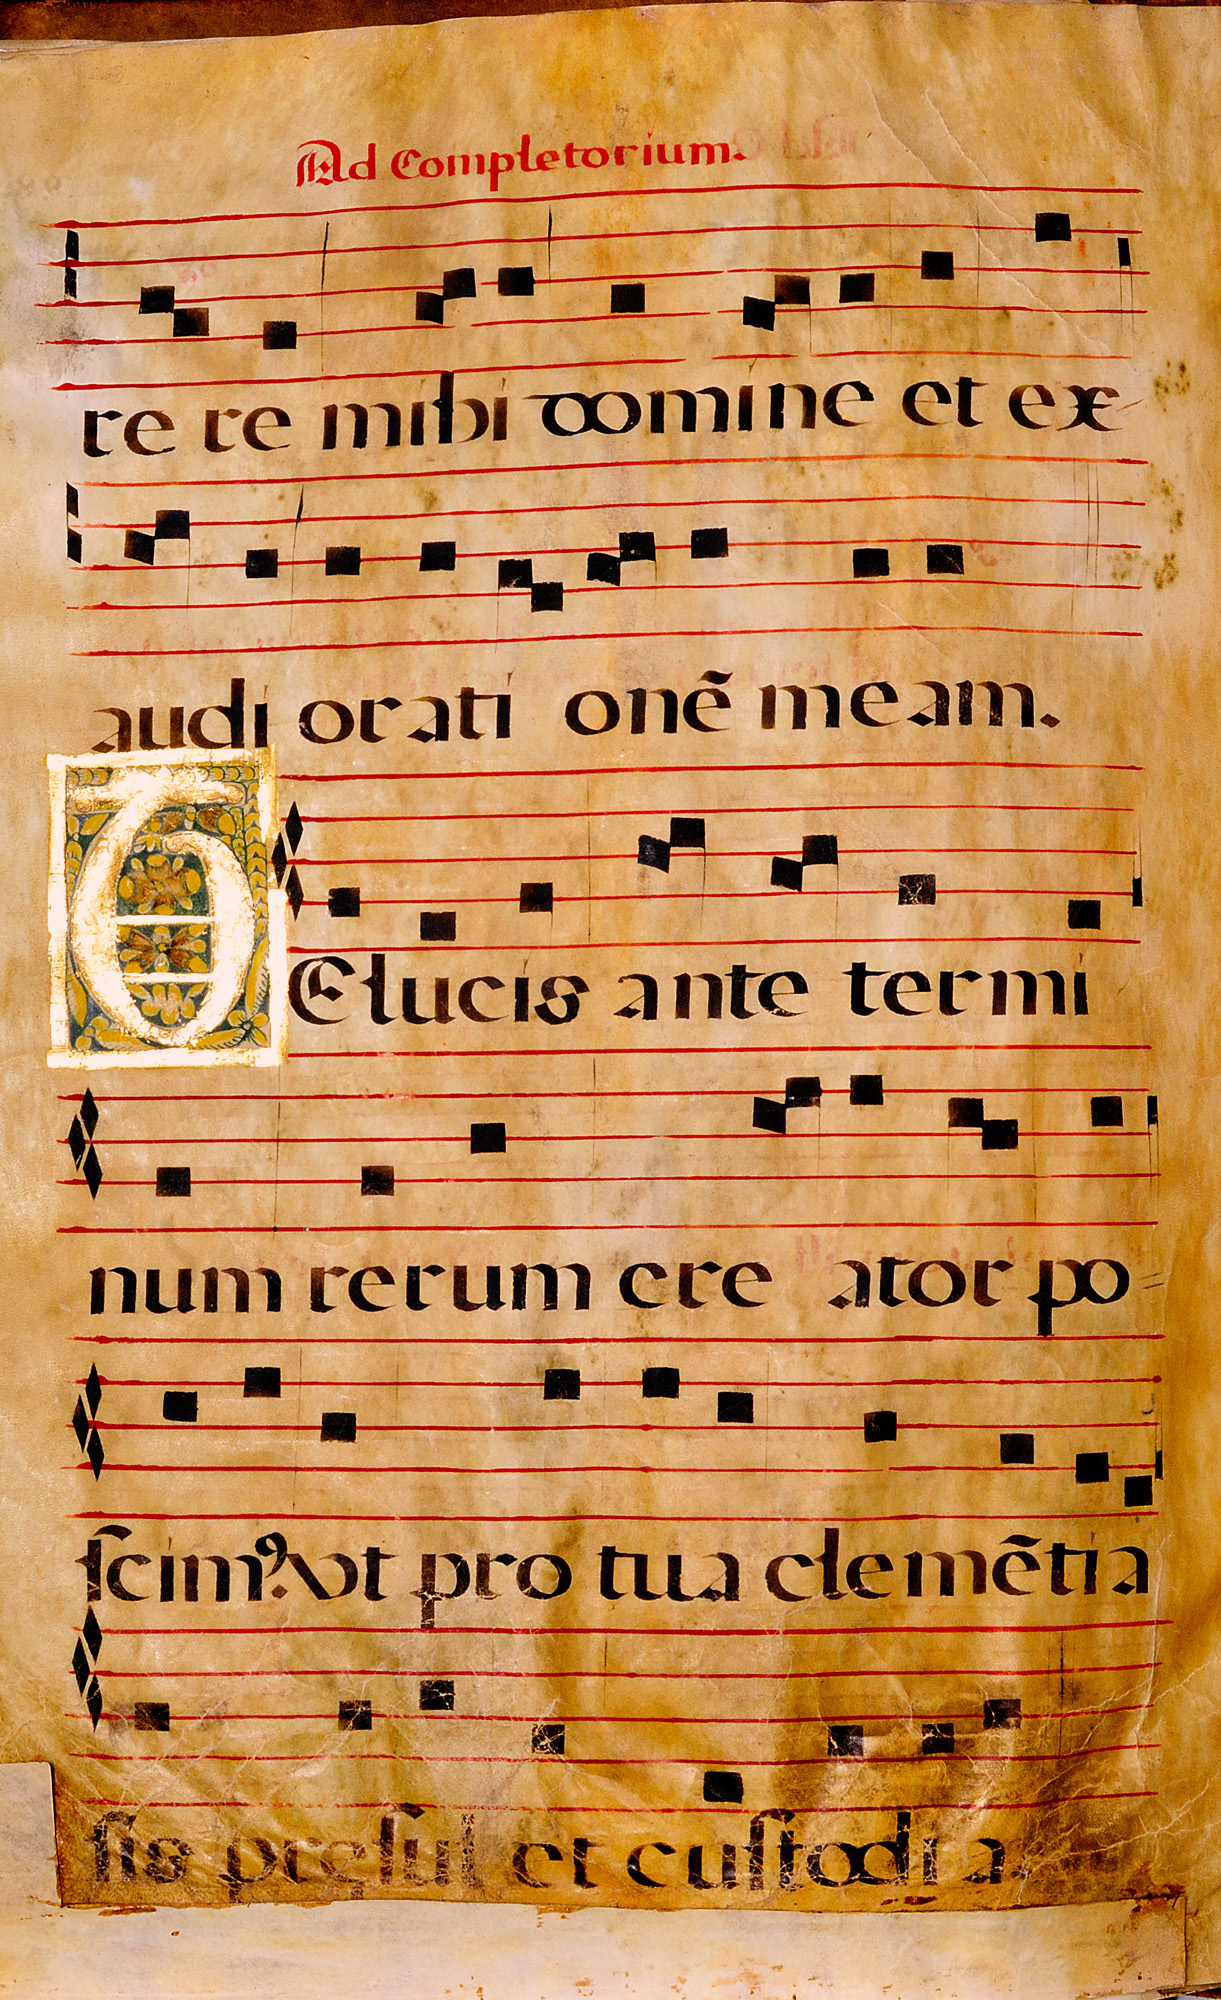 Ad Completorium.
re re mihi domine et ex
audi orati onẽ meam.
TE lucis ante termi
num rerum cre ator po
ſcimꝰ. vt pro tua clemẽtia
ſis preſul et cuſtodi a